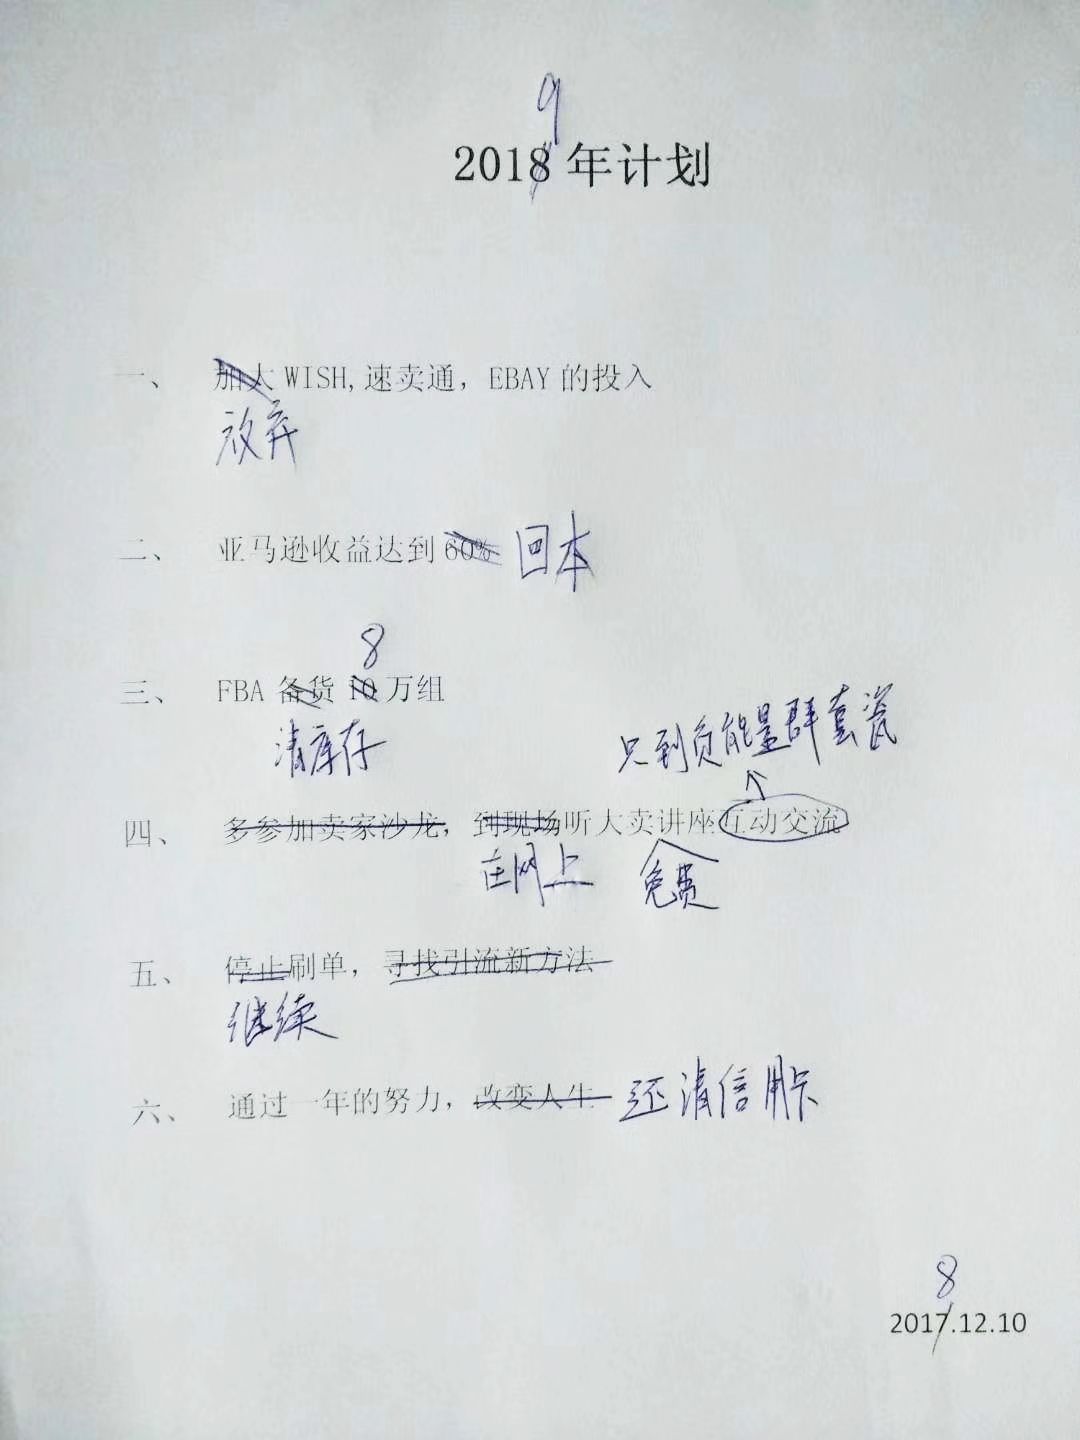 9
2018年计划
一、 加大WISH,速卖通，EBAY的投入
放弃
二、 亚马逊收益达到60% 回本
8
三、 FBA备货10万组
清库存
只到负能量群套瓷
四、 多参加卖家沙龙，到现场听大卖讲座互动交流
在网上 免费
五、 停止刷单，寻找引流新方法
继续
六、 通过一年的努力，改变人生 还清信用卡
8
2017.12.10